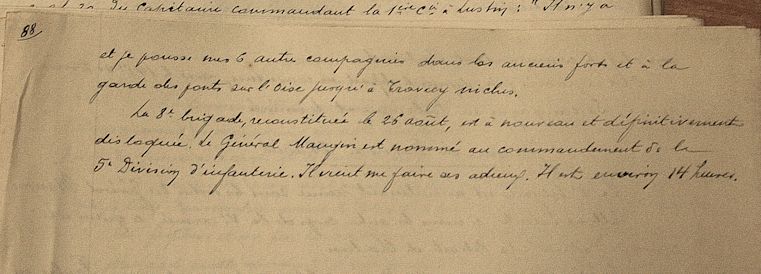 du capitaine commandant la 1ère Cie à Lustin : "Il n'y a
88
et je pousse mes 6 autre compagnies dans les anciens forts et à la
garde des ponts sur l'Oise jusqu'à Travecy inclus.
La 8e brigade, reconstituée le 26 août, est à nouveau et définitivement
disloquée. Le Général Mangin est nommé au commandement de la
5e Division d'infanterie. Il vient me faire ses adieux. Il est environ 14 heures.